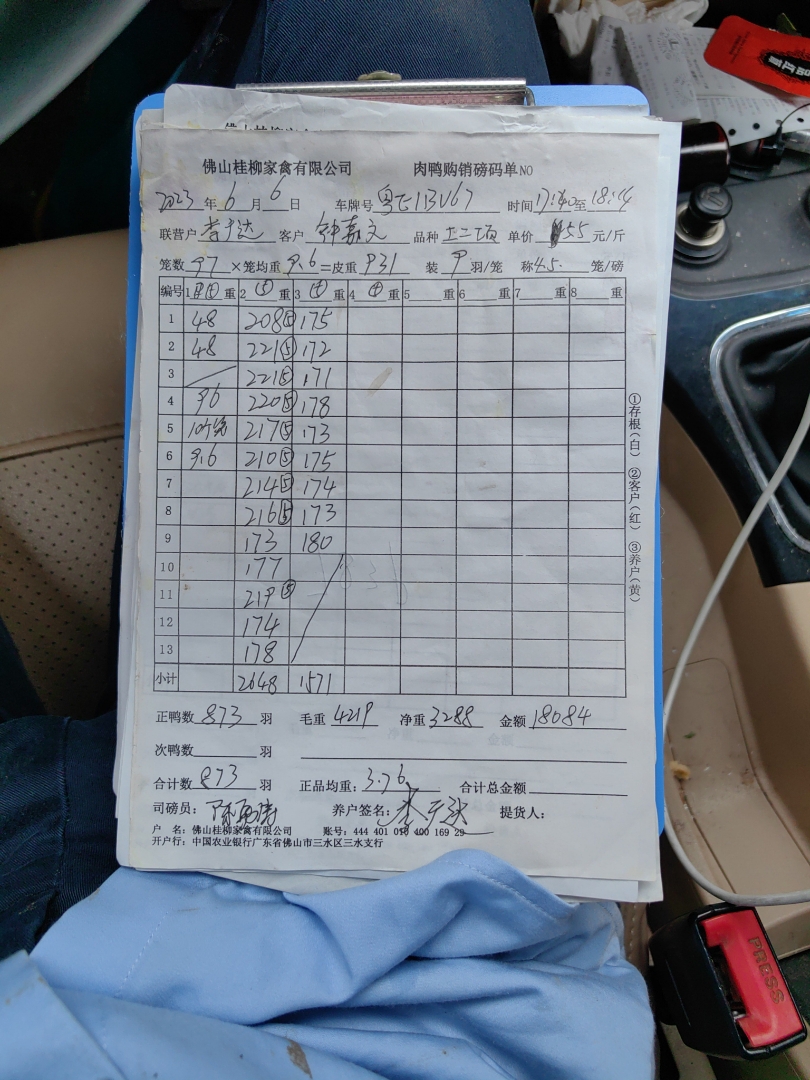 佛山桂柳家禽有限公司 肉鸭购销磅码单NO
2023 年 6 月 6 日 车牌号 粤E13V67 时间 17:40 至 18:14
联营户 李于达 客户 钟嘉文 品种 单价 55 元/斤
笼数 97 ×笼均重 9.6 =皮重 931 装 9 羽/笼 称 4.5. 笼/磅
编号 1 重 2 重 3 重 4 重 5 重 6 重 7 重 8 重
1 48 208⑤ 175
2 48 221⑤ 172
3 221⑤ 171
4 96 220⑤ 178
5 10个笼 217⑤ 173
6 9.6 210⑤ 175
7 214⑤ 174
8 216⑤ 173
9 173 180
10 177
11 219⑤
12 174
13 178
小计 2648 1571
正鸭数 873 羽 毛重 4219 净重 3288 金额 18084
次鸭数 羽
合计数 873 羽 正品均重: 3.76 合计总金额
司磅员: 养户签名: 提货人:
户 名: 佛山桂柳家禽有限公司 账号: 444 401 010 400 169 29
开户行: 中国农业银行广东省佛山市三水区三水支行
①存根(白) ②客户(红) ③养户(黄)
PRESS